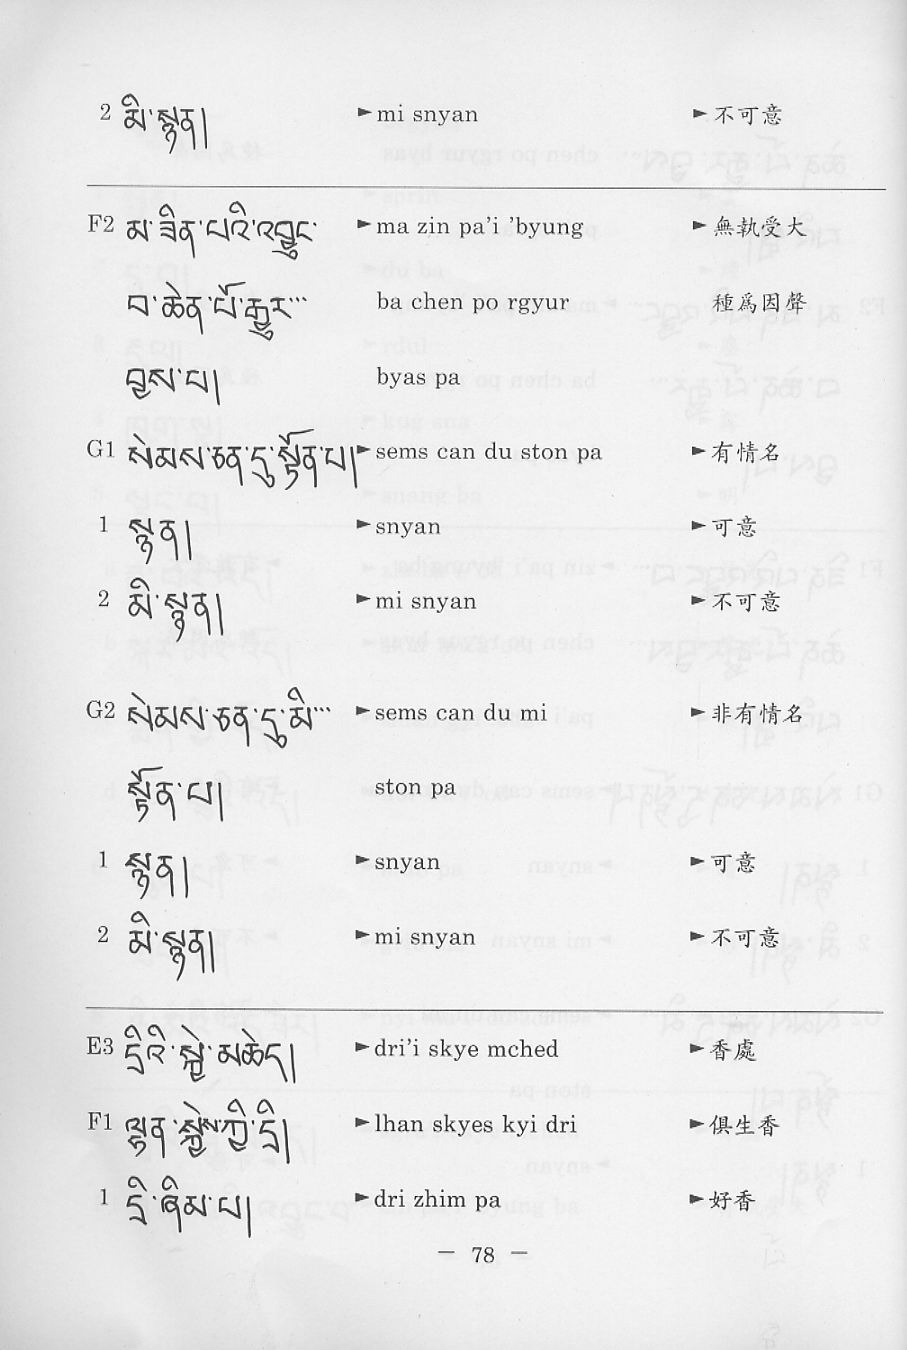 2 མི་སྙན། ►mi snyan ►不可意
F2 མ་ཟིན་པའི་འབྱུང་ ►ma zin pa’i ’byung ►無執受大
བ་ཆེན་པོ་རྒྱུར… ba chen po rgyur 種爲因聲
བྱས་པ། byas pa
G1 སེམས་ཅན་དུ་སྟོན་པ། ►sems can du ston pa ►有情名
1 སྙན། ►snyan ►可意
2 མི་སྙན། ►mi snyan ►不可意
G2 སེམས་ཅན་དུ་མི… ►sems can du mi ►非有情名
སྟོན་པ། ston pa
1 སྙན། ►snyan ►可意
2 མི་སྙན། ►mi snyan ►不可意
E3 དྲིའི་སྐྱེ་མཆེད། ►dri’i skye mched ►香處
F1 ལྷན་སྐྱེས་ཀྱི་དྲི། ►lhan skyes kyi dri ►俱生香
1 དྲི་ཞིམ་པ། ►dri zhim pa ►好香
— 78 —